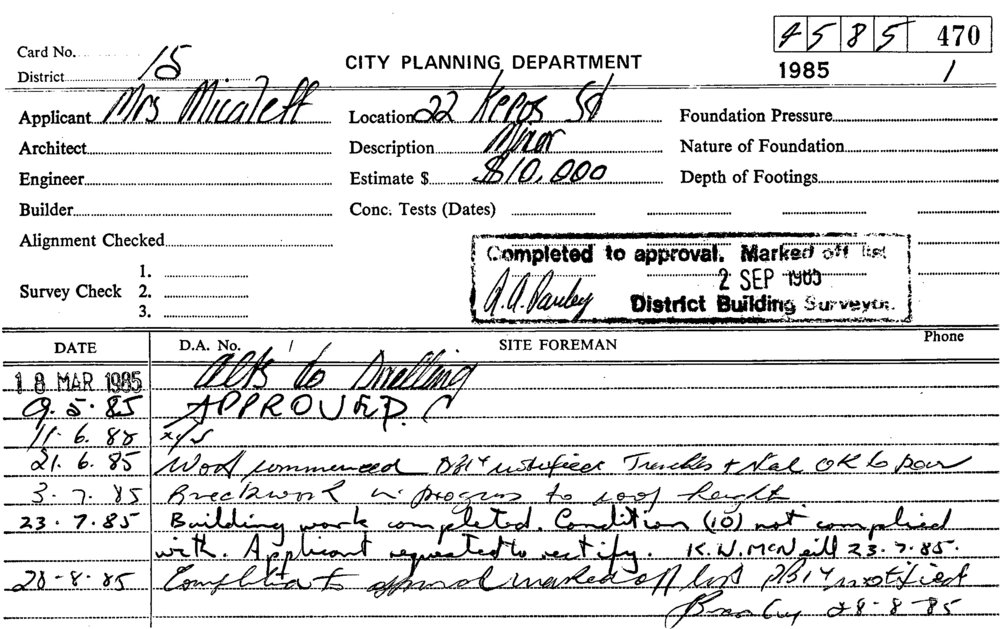 4585 470
Card No. 15 CITY PLANNING DEPARTMENT 1985 /
District
Applicant Mrs Micaleff Location 22 Keppos St Foundation Pressure
Architect Description Minor Nature of Foundation
Engineer Estimate $ $10,000 Depth of Footings
Builder Conc. Tests (Dates)
Alignment Checked
Completed to approval. Marked off list
1.
Survey Check 2. 2 SEP 1985
3. District Building Surveyor.
DATE D.A. No. / SITE FOREMAN Phone
18 MAR 1985 alts to Dwelling
9.5.85 APPROVED.
11.6.85
21.6.85 Work commenced notified Trenches + OK to pour
3.7.85 Brickwork in progress to roof height
23.7.85 Building work completed. Condition (10) not complied
with. Applicant requested to rectify. K.W. McNeill 23.7.85.
28-8.85 to approval marked off list notified
28-8-85